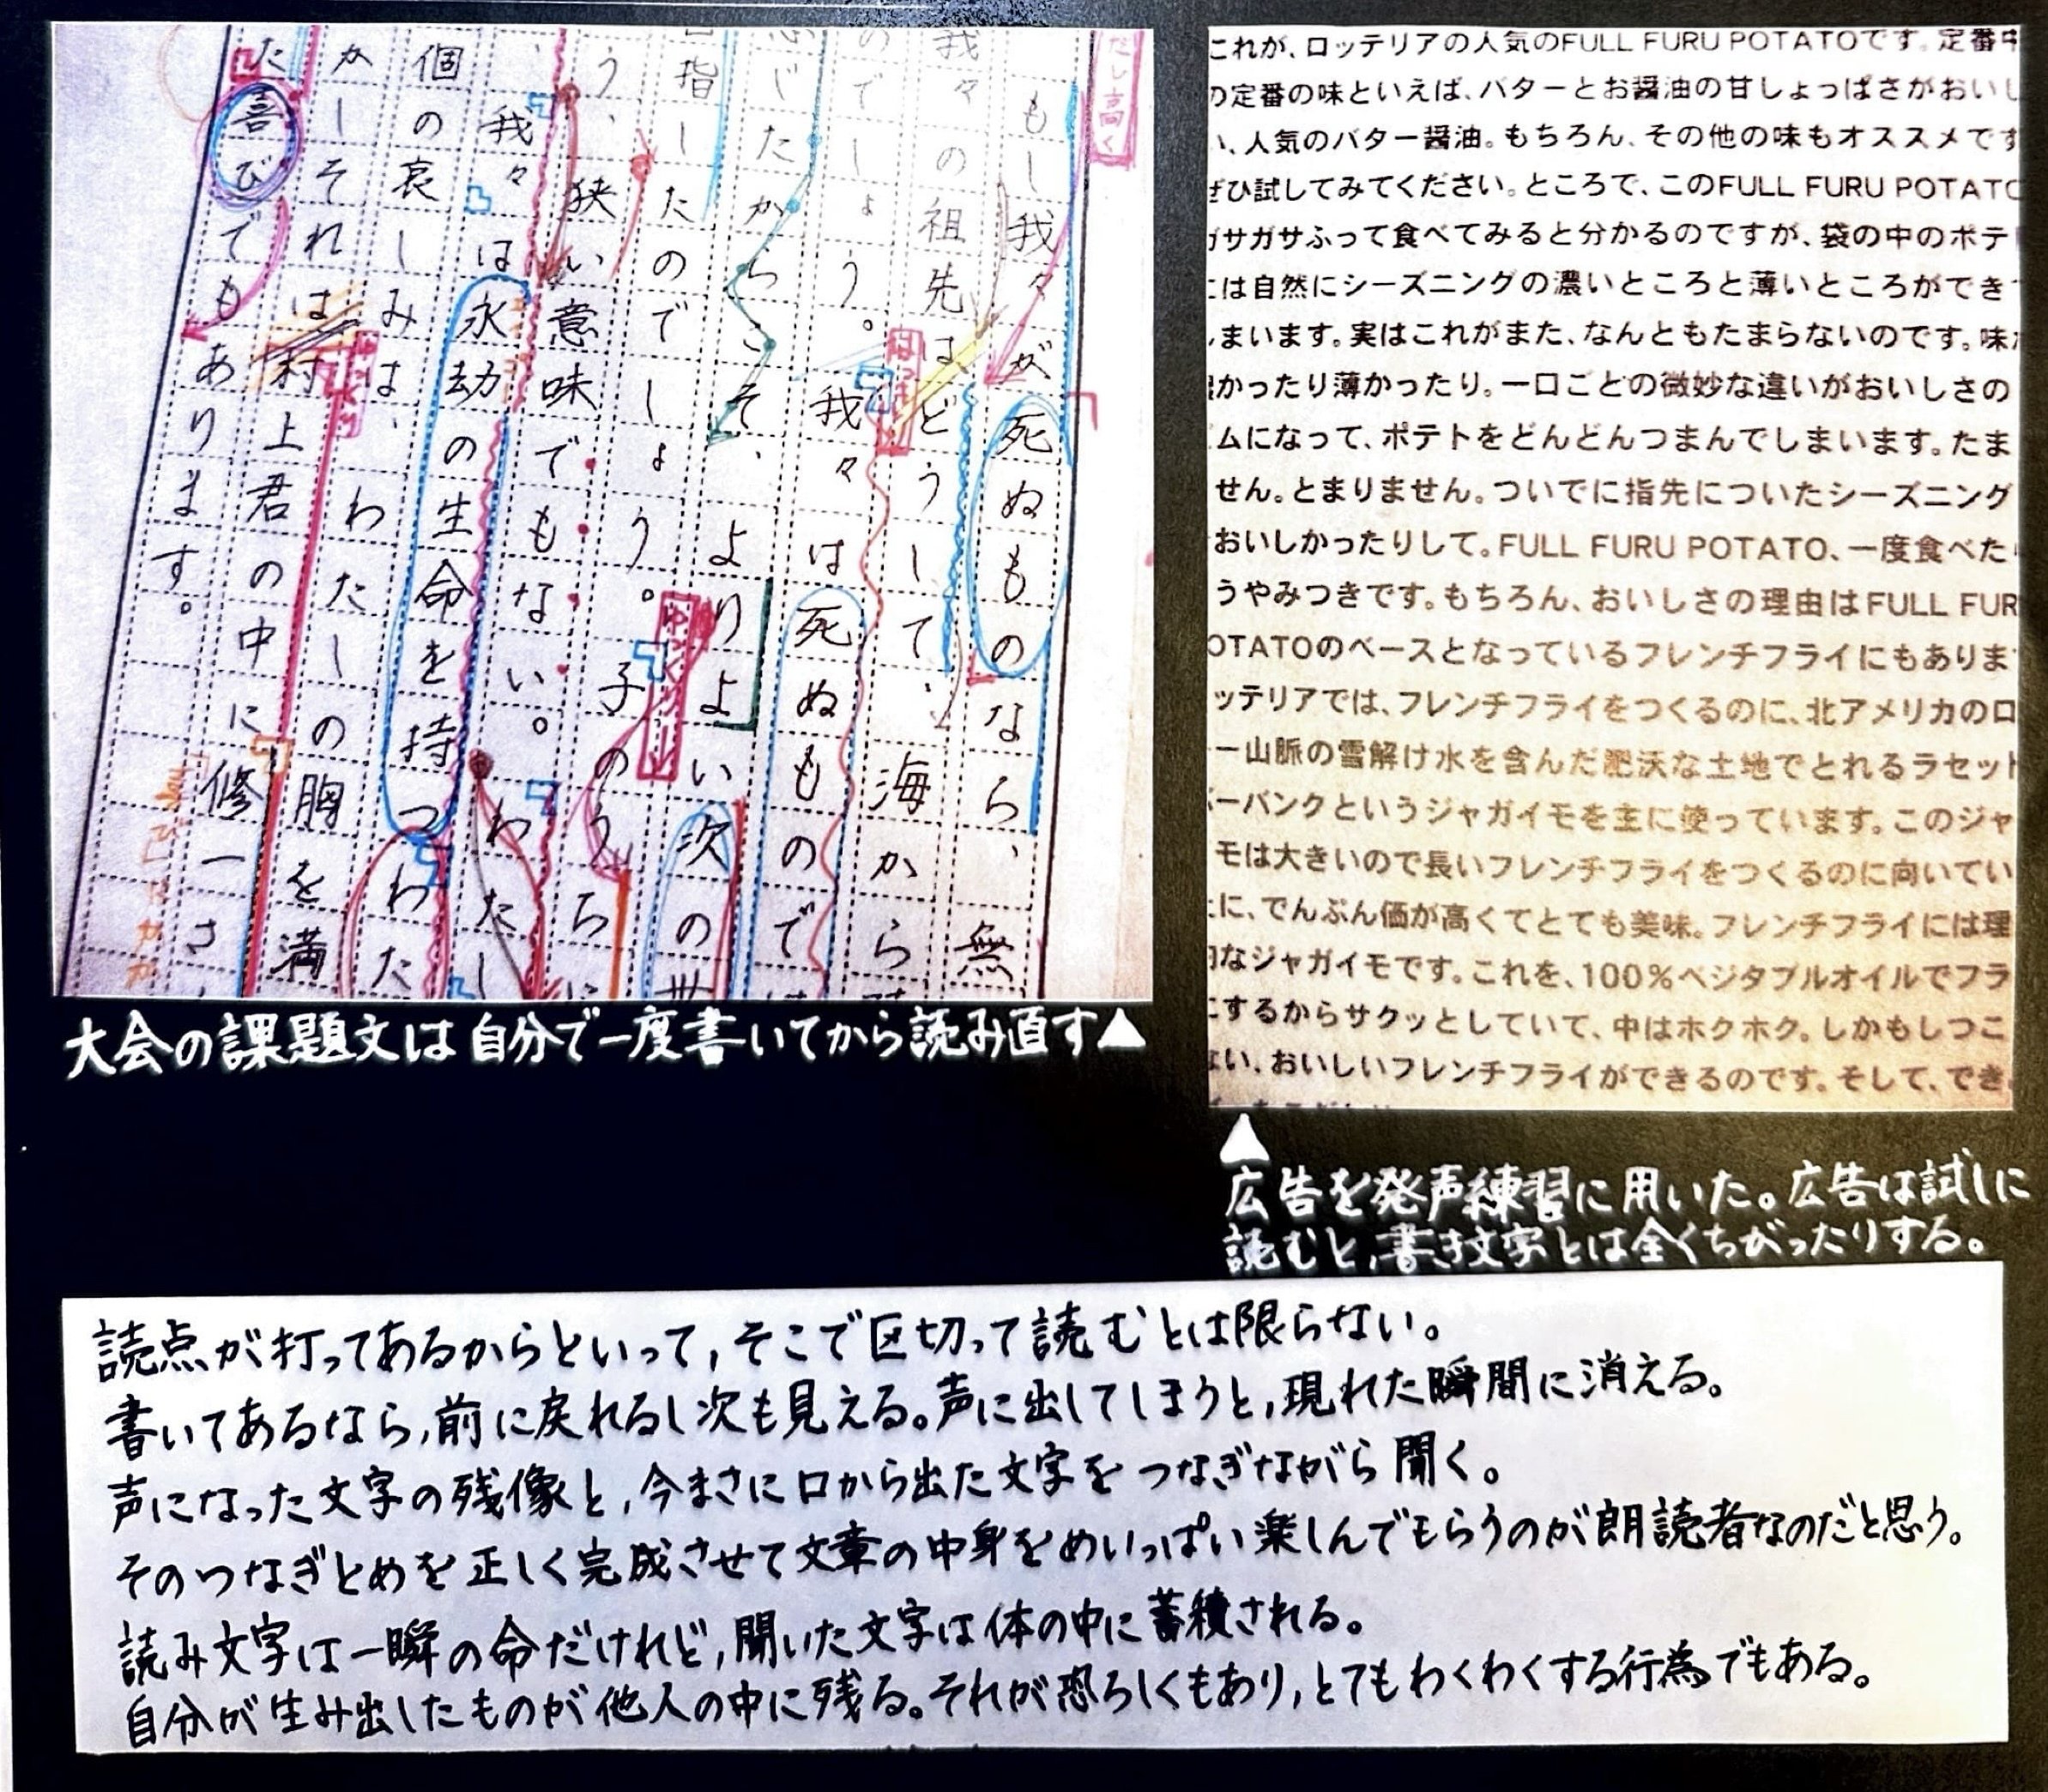 だし高く
もし我々が死ぬものなら、無
我々の祖先はどうして、海から
のでしょう。我々は死ぬものでは
じたからこそ、よりよい次の世
指したのでしょう。子のうちに
ゆっくり↓
う、狭い意味でもない。わたし
、我々は永劫の生命を持つわた
個の哀しみは、わたしの胸を満
かしそれは村上君の中に修一さ
た喜びでもあります。
大会の課題文は自分で一度書いてから読み直す▲
これが、ロッテリアの人気のFULL FURU POTATOです。定番中
の定番の味といえば、バターとお醤油の甘しょっぱさがおいし
い、人気のバター醤油。もちろん、その他の味もオススメです
ぜひ試してみてください。ところで、このFULL FURU POTATO
ガサガサふって食べてみると分かるのですが、袋の中のポテト
には自然にシーズニングの濃いところと薄いところができて
しまいます。実はこれがまた、なんともたまらないのです。味が
濃かったり薄かったり。一口ごとの微妙な違いがおいしさの
ムになって、ポテトをどんどんつまんでしまいます。たま
せん。とまりません。ついでに指先についたシーズニング
おいしかったりして。FULL FURU POTATO、一度食べたら
うやみつきです。もちろん、おいしさの理由はFULL FUR
OTATOのベースとなっているフレンチフライにもありま
ッテリアでは、フレンチフライをつくるのに、北アメリカのロ
ー山脈の雪解け水を含んだ肥沃な土地でとれるラセット
バーバンクというジャガイモを主に使っています。このジャ
モは大きいので長いフレンチフライをつくるのに向いてい
上に、でんぷん価が高くてとても美味。フレンチフライには理
的なジャガイモです。これを、100%ベジタブルオイルでフラ
にするからサクッとしていて、中はホクホク。しかもしつこ
ない、おいしいフレンチフライができるのです。そして、でき
▲
広告を発声練習に用いた。広告は試しに
読むと,書き文字とは全くちがったりする。
読点が打ってあるからといって,そこで区切って読むとは限らない。
書いてあるなら,前に戻れるし次も見える。声に出してしまうと,現れた瞬間に消える。
声になった文字の残像と,今まさに口から出た文字をつなぎながら聞く。
そのつなぎとめを正しく完成させて文章の中身をめいっぱい楽しんでもらうのが朗読者なのだと思う。
読み文字は一瞬の命だけれど,聞いた文字は体の中に蓄積される。
自分が生み出したものが他人の中に残る。それが恐ろしくもあり,とてもわくわくする行為でもある。